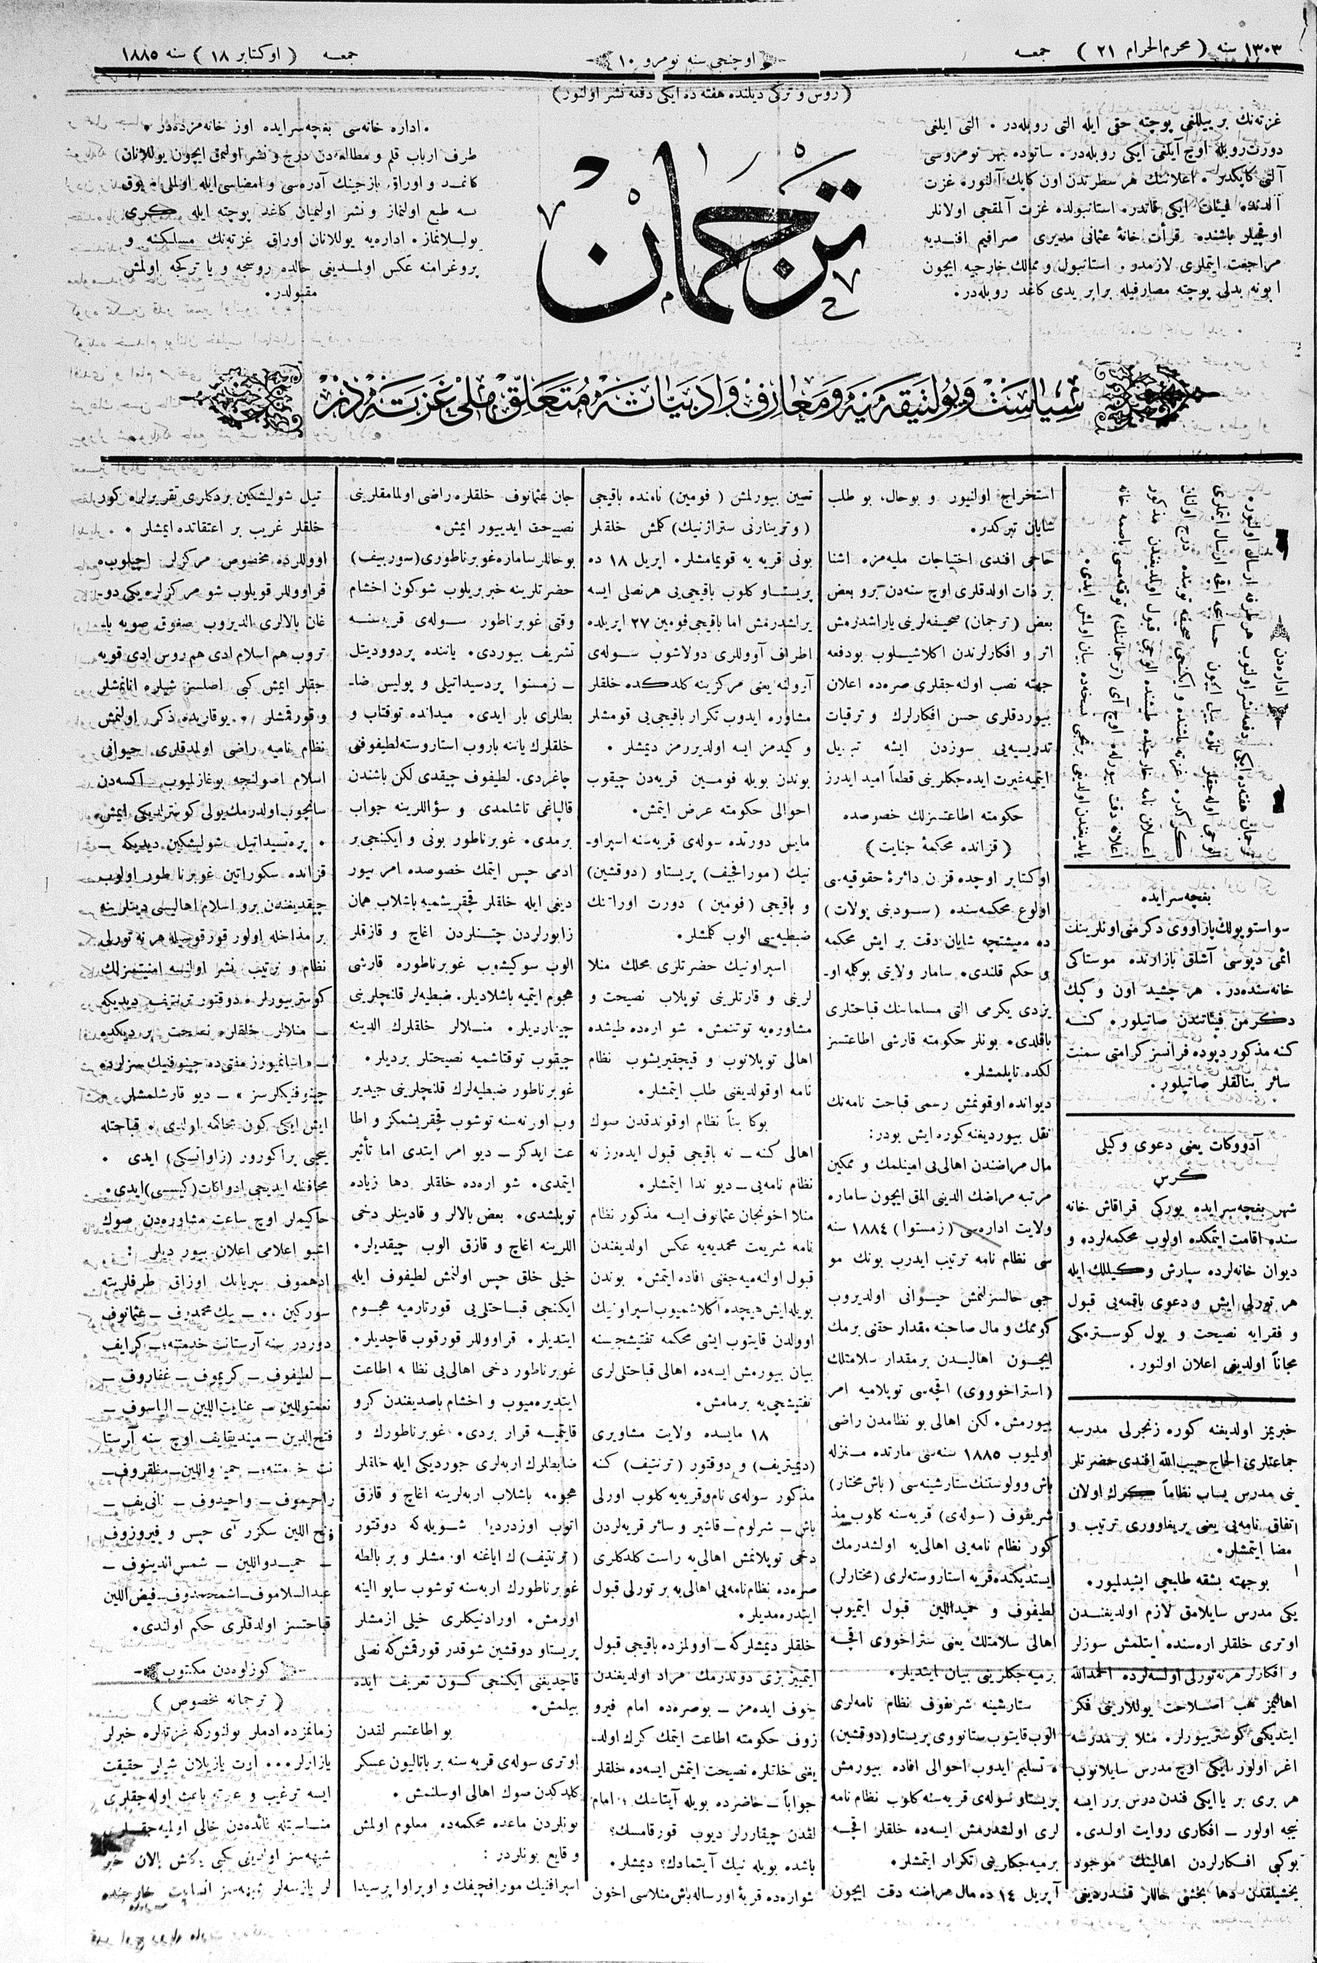 ١٣٠٣ سنه ( محرم الحرام ٢١ ) جمعه
اوچنجی سنه نومرو ١٠
جمعه ( اوكتابر ١٨ ) سنه ١٨٨٥
( روس و تركی دیلنده هفته ده ایكی دفعه نشر اولنور )
غزته‌نك بر ییللغی پوچته حقی ایله التی روبله‌در . التی ایلغی
دورت روبله اوچ آیلغی ایكی روبله‌در . ساتوده بهر نومروسی
آلتی كاپكدر . اعلاننك هر سطرندن اون كاپك آلنوره غزت
آلدنده فیئات ایكی قاتدر. استانبولده غزت آلمقجی اولانلر
اوقچیلر باشنده قرأت خانۀ عثمانی مدیری صرافیم افندیه
مراجعت ایتملری لازمدو . استانبول و ممالك خارجیه ایچون
ابونه بدلی پوچته مصارفیله برابر یدی كاغد روبله‌در.
ترجمان
. اداره خانه‌سی بغچه‌سرایده اوز خانه‌مزده‌در .
طرف ارباب قلم و مطالعه‌دن درج و نشر اولنمق ایچون یوللانان
كاغد و اوراق یازجینك آدره‌سی و امضاسی ایله اولملی . یوق
سه طبع اولنماز و نشر اولنمیان كاغد پوچته ایله كری
یوللانماز. اداره‌یه یوللانان اوراق غزته‌نك مسلكنه و
پروغرامنه عكس اولمدینی حالده روسجه و یا تركجه اولمش
مقبولدر.
سیاست و پولتیقه‌یه و معارف و ادبیاته متعلق ملی غزته‌مزدر
اداره‌دن
ترجمان هفته‌ده ایكی دفعه نشر اولنوب هر طرفه ارسال اولنور.
بغچه‌سرایده
سواستوپولك بازاووی دكرمنی اونلرینك
ائمی دپوسی آشلق بازارنده موستاكی
خانه‌سنده‌در. هر چشید اون و كپك
دكرمن فیئاتندن صاتیلور. كنه
كنه مذكور دپوده فرانسز كرامتی سمنت
سائر بنالقلر صاتیلور .
آدووكات یعنی دعوی وكیلی
كرس
شهر بغچه‌سرایده یوركی قراقاش خانه
سنده اقامت ایتمكده اولوب محكمه‌لرده و
دیوان خانه‌لرده سپارش وكیللك ایله
هر تورلی ایش و دعوی باقمه‌یی قبول
و فقرایه نصیحت و یول كوسترمكی
مجاناً اولدینی اعلان اولنور .
خبریمز اولدیغنه كوره زنجرلی مدرسه
جماعتلری الحاج حبیب الله افندی حضرتلر
ینی مدرس یساب نظاماً كرك اولان
اتفاق نامه‌یی یعنی پریغاووری ترتیب و
مضا ایتمشلر.
بوجهته بشقه طلبچی ایشیدلمیور.
یكی مدرس سایلامق لازم اولدیغندن
اوتری خلقلر اره‌سنده ایتلمش سوزلر
و افكارلر هر نه تورلی اولسه‌لرده الحمدلله
اهالیمز هب اصلاحت یوللارینی فكر
ایتدیكی كوسترییورلر. مثلا بر مدرسه
اغر اولور، ایكی اوچ مدرس سایلانوب
هر بری بر یا ایكی فندن درس برر ایسه
نیجه اولور ــ افكاری روایت اولدی.
بوكبی افكارلردن اهالینك موجود
یخشیلقدن دها یخشی حاللر قندردینی
استخراج اولنیور و بوحال، بو طلب
شایان تبركدر.
حاجی افندی احتیاجات ملیه‌مزه اشنا
بر ذات اولدقلری اوچ سنه‌دن برو بعض
بعض (ترجمان) صحیفه‌لرینی یاراشدرمش
اثر و افكارلرندن اكلاشیلوب بودفعه
جهته نصب اولنه‌جقلری صره‌ده اعلان
بیوردقلری حسن افكارلرك و ترقیات
تدریسیه‌یی سوزدن ایشه تبدیل
ایتمیه غیرت ایده‌جكلرینی قطعاً امید ایدرز
حكومته اطاعتسزلك خصوصده
( قزانده محكمۀ جنایت )
اوكتابر اوچده قزن دائرۀ حقوقیه‌یی
اولوغ محكمه‌سنده (سودبنی پولات)
ده میشتچه شایان دقت بر ایش محكمه
و حكم قلندی. سامار ولایتی بوكلمه او-
یزدی یكرمی التی مسلمانك قباحتلری
باقلدی. بونلر حكومته قارشی اطاعتسز
لكده تاپلمشلر.
دیوانده اوقونمش رسمی قباحت نامه‌نك
نقل بیوردیغنه‌كوره ایش بودر:
مال مراضندن اهالی‌یی امینلمك و ممكن
مرتبه مراضك الدینی المق ایچون سامار.
ولایت اداره‌سی (زمستوا) ١٨٨٤ سنه
سی نظام نامه ترتیب ایدرب بونك مو
جبی حالسزلنمش حیوانی اولدیروب
كوممك و مال صاحبنه مقدار حقنی برمك
ایچون اهالیدن بر مقدار سلامتلك
(استراخوووی) اقچه‌سی توپلامیه امر
بیورمش. لكن اهالی بو نظامدن راضی
اولمیوب ١٨٨٥ سنه‌سی مارتده منزله
باش وولوستنك ستارشینه‌سی (باش مختار)
شریفوف (سوله‌ی) قریه‌سنه كلوب مذ
كور نظام نامه‌یی اهالی‌یه اولشدرمك
ایستدیكنده قریه استاروسته‌لری (مختارلر)
لطیفوف و حمیداللین قبول ایتمیوب
اهالی سلامتلك یعنی ستراخووی اقچه
برمیه‌جكلرینی بیان ایتدیلر.
ستارشینه شریفوف نظام نامه‌لری
الوب قایتوب ستانووی پریستاو (دوقشین)
ه تسلیم ایدوب احوالی افاده بیورمش
پریستاو سوله‌ی قریه‌سنه كلوب نظام نامه
لری اولشدرمش ایسه‌ده خلقلر اقچه
برمیه‌جكارینی تكرار ایتمشلر.
آپریل ١٤ ده مال مراضنه دقت ایچون
تعیین بیورلمش ( فومین ) نامنده باقیجی
( وترینارنی ستراژنیك) كلمش خلقلر
بونی قریه یه قویمامشلر. اپریل ١٨ ده
پریستاو كلوب باقیجی‌یی هرنصلی ایسه
یرلشدرمش اما باقیجی فومین ٢٧ اپریلده
اطراف آووللری دولاشوب سوله‌ی
آرولنه یعنی مركزینه كلدكده خلقلر
مشاوره ایدوب تكرار باقیجی‌یی قومشلر
و كیدمز ایسه اولدیررمز دیمشلر.
بوندن بویله فومین قریه‌دن چیقوب
احوالی حكومته عرض ایتمش.
مایس دورتده سوله‌ی قریه‌سنه اسپراو-
نیك (مورافچیف) پریستاو (دوقشین)
و باقیجی (فومین) دورت اورادنك
ضبطیه‌یی الوب كلمشلر.
اسپراونیك حضرتلری محلك منلا
لرینی و قارتلرینی توپلاب نصیحت و
مشاوره‌یه توتنمش. شو اره‌ده طیشده
اهالی توپلانوب و قیچقریشوب نظام
نامه اوقولدیغنی طلب ایتمشلر.
بوكا بناً نظام اوقوندقدن صوك
اهالی كنه ــ نه باقیجی قبول ایده‌رز نه
نظام نامه‌یی ــ دیو ندا ایتمشلر.
منلا اخونجان عثمانوف ایسه مذكور نظام
نامه شریعت محمدیه‌یه عكس اولدیغندن
قبول اولنه‌میه‌جغنی افاده ایتمش. بوندن
بویله ایش هیچده اكلاشمیوب اسپراونیك
اوولدن قایتوب ایشی محكمه تفتیشچیسنه
بیان بیورمش ایسه‌ده اهالی قباحتلی‌لری
تفتیشچی‌یه برمامش.
١٨ مایده ولایت مشاویری
(دیمیتریف) و دوقتور (ترنتیف) كنه
مذكور سوله‌ی نام قریه‌یه كلوب اورلی
باش ــ شرلوم ــ قاشیر و سائر قریه‌لردن
دخی توپلانمش اهالی‌یه راست كلدكلری
صره‌ده نظام‌نامه‌یی اهالی‌یه بر تورلی قبول
ایتدره‌مدیلر.
خلقلر دیمشلركه ــ اوولمزده باقیجی قبول
ایتمییز بزی دوندرمك مراد اولدیغندن
خوف ایده‌مز ــ بوصره‌ده امام فیرو
زوف حكومته اطاعت ایتمك كرك اولد-
یغنی خلقلره نصیحت ایتمش ایسه‌ده خلقلر
جواباً ــ حاضرده بویله آیتاسك ؛ امام
لقدن چیقاررلر دیوب قورقامسك؟
باشده بویله نیك آیتمادك؟ دیمشلر.
شواره‌ده قریۀ اورساله‌باش منلاسی اخون
جان عثمانوف خلقلره راضی اولمامقلرینی
نصیحت ایدییور ایمش.
بوحاللر ساماره غوبرناطوری (سوربیف)
حضرتلرینه خبر بریلوب شوكون اخشام
وقتی غوبرناطور سوله‌ی قریه‌سنه
تشریف بیوردی. یاننده پردوودیتل
ــ زمستوا پردسیداتیلی و پولیس ضا-
بطلری بار ایدی. میدانده توقتاب و
خلقلرك یاننه باروب استاروسته لطیفوفنی
چاغردی. لطیفوف چیقدی لكن باشندن
قالپاغی تاشلمدی و سؤاللرینه جواب
برمدی. غوبرناطور بونی و ایكنجی بر
ادمی حبس ایتمك خصوصده امر بیور
دیغی ایله خلقلر قچقریشمیه باشلاب همان
زابورلردن چتنلردن اغاچ و قازقلر
الوب سوكیشوب غوبرناطوره قارشی
هجوم ایتمیه باشلادیلر. ضبطیه‌لر قلنچلرینی
چیقاردیلر. منلالر خلقلرك الدینه
چیقوب توقتاشمیه نصیحتلر بردیلر.
غوبرناطور ضبطیه‌لرك قلنچلرینی جیدیر
وب اورنه‌سنه توشوب قچقریشمكز و اطا
عت ایدكز ــ دیو امر ایتدی اما تأثیر
ایتمدی. شو اره‌ده خلقلر دها زیاده
توپلشدی. بعض بالالر و قادینلر دخی
اللرینه اغاچ و قازق الوب چیقدیلر.
خیلی خلق حبس اولنمش لطیفوف ایله
ایكنجی قباحتلی‌یی قورتارمیه هجوم
ایتدیلر. قراووللر قورقوب قاچدیلر.
غوبرناطور دخی اهالی‌یی نظامه اطاعت
ایتدیره‌میوب و اخشام باصدیغندن كرو
قایتمیه قرار بردی. غوبرناطورك و
ضابطلرك اربه‌لری جوردیكی ایله خلقلر
هجومه باشلاب اربه‌لرینه اغاچ و قازق
اتوب اوزدردیلر شویله‌كه دوقتور
(ترنتیف) ك ایاغنه اورمشلر و بر بالطه
غوبرناطورك اربه‌سنه توشوب ساپو الینه
اورمش. اورادنیكلری خیلی ازمشلر
پریستاو دوقشین شوقدر قورقمش‌كه نصلی
قاچدیغنی ایكنجی كون تعریف ایده
بیلمش.
بو اطاعتسز لقدن
اوتری سوله‌ی قریه سنه بر باتالیون عسكر
كلدكدن صوك اهالی اوسلنمش .
بونلردن ماعده محكمه‌ده معلوم اولمش
و قایع بونلردر :
اسپرافنیك مورافچیفك و اوپراوا پرسیدا
تیل شولیشكین بردكاری تقریرلره كور
خلقلر غریب بر اعتقادنده ایمشلر .
اووللرده مخصوص مركزلر اچیلوب،
قراووللر قویلوب شو مركزلره یكی دو-
غان بالالری الدیروب صغوق صویه با-
تروب هم اسلام ادی هم روس ادی قویه
جقلر ایمش كبی اصلسز شیلره انانمشلر
و قورقمشلر . یوقاریده ذكر اولنمش
نظام نامیه راضی اولمدقلری حیوانی
اسلام اصولنچه بوغازلمیوب اكسه‌دن
سانچوب اولدرمك یولی كوسترلدیكی ایمش.
. پره‌تسیداتیل شولیشكین دیدیكه ــ
قزانده سكوراتین غوبرناطور اولوب
چیقدیغندن برو اسلام اهالیسی دینلرینه
بر مداخله اولور قورقوسیله هر نه تورلی
نظام و ترتیب نشر اولنسه امنیتسزلك
كوسترییورلر. دوقتور ترنتیف دیدیكه
ــ منلالر خلقلره نصیحت بردیكده
ــ «انانمیورز مفتی‌ده چینوفنیك سزلرده
چینوفنیكلرسز » ــ دیو قارشلمشلر .
ایش ایكی كون محاكمه اولندی . قباحتله
یجی پراكورور (زاوانسكی) ایدی .
محافظه ایدیجی ادواكات (كیسی) ایدی.
حاكیملر اوچ ساعت مشاوره‌دن صوك
اشبو اعلامی اعلان بیور دیلر :
ادهموف سیریانك اوزاق طرفلرینه
سوركین .. ــ بیك‌محمدیف ــ عثمانوف
دوردر سنه آرستانت خدمتنه؛ ــ كرایف
ــ لطیفوف ــ كریموف ــ غفاروف ــ
نعمتوللین ــ عنایت‌اللین ــ الیاسوف ــ
فتح‌الدین ــ میندیقایف اوچ سنه آرستا
نت خدمتنه؛ ــ حمیداللین ــ مظفروف ــ
راحیموف ــ واحیدوف ــ نانی‌یف ــ
فتح اللین سكزر آی حبس و فیروزوف
ــ حمیدواللین ــ شمس‌الدینوف ــ
عبدالسلاموف ــ اشمحمدوف ــ فیض‌اللین
قباحتسز اولدقلری حكم اولندی.
كوزلوه‌دن مكتوب
( ترجمانه مخصوص )
زمانمزده ادملر بولنوركه غزته‌لره خبرلر
یازارلر... ارت یازیلان شیلر حقیقت
ایسه ترغیب و عبرته باعث اوله‌جقلری
مناسبتله فائده‌دن خالی اولمیه‌جقلری
شبهه‌سز اولدینی كبی یكاش یالان خبر
لر یازسه‌لر شبهه‌سز انسانیت خارجنده